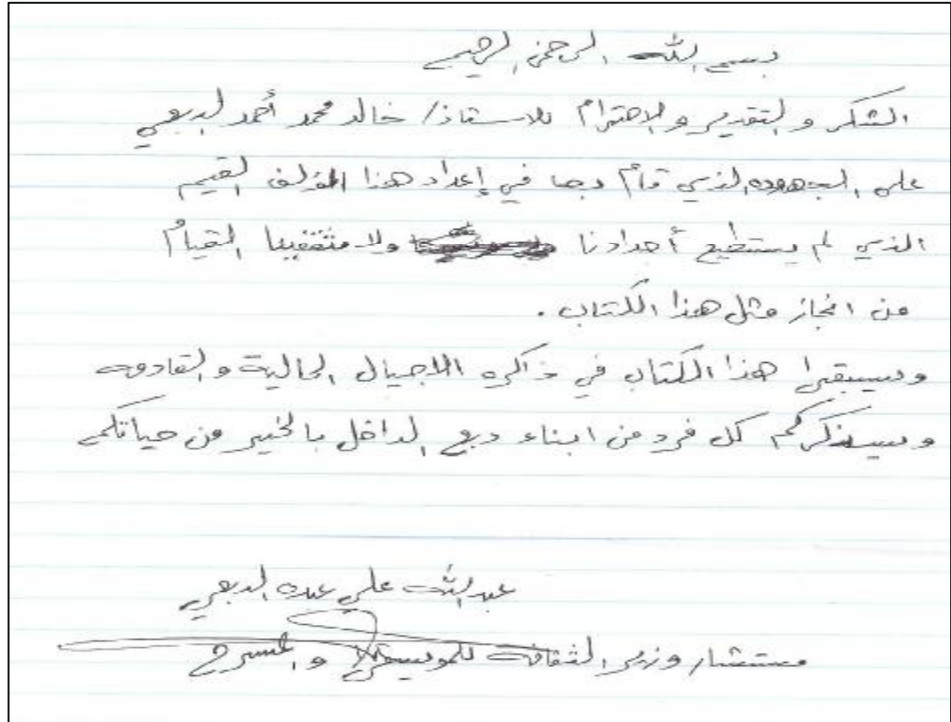 بسم الله الرحمن الرحيم
الشكر والتقدير والاحترام للاستاذ/ خالد محمد أحمد الدبعي
على الجهود الذي قام بها في إعداد هذا المؤلف القيم
الذي لم يستطيع أجدادنا ولا مثقفينا القيام
من انجاز مثل هذا الكتاب .
وسيبقىا هذا الكتاب في ذاكره الاجيال الحالية والقادمه
وسيذكركم كل فرد من ابناء دبع الداخل بالخير من حياتكم
عبدالله علي عبده الدبعي
مستشار وزير الثقافه للموسيقى والمسرح